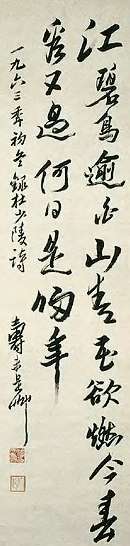 江碧鸟逾白山青花欲燃今春
看又过何日是归年
一九六三年初冬录杜少陵诗